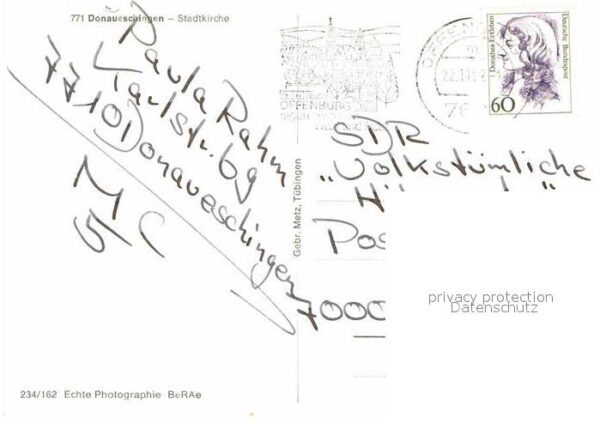 771 Donaueschingen – Stadtkirche
Paula Rahm
Karlstr. 69
7710 Donaueschingen
M
5 C
OFFENBURG
OFFENBURG
60
Dorothea Erxleben
Deutsche Bundespost
Gebr. Metz, Tübingen
SDR
„Volkstümliche
H" "
Pos
7000
privacy protection
Datenschutz
234/162 Echte Photographie BeRAe